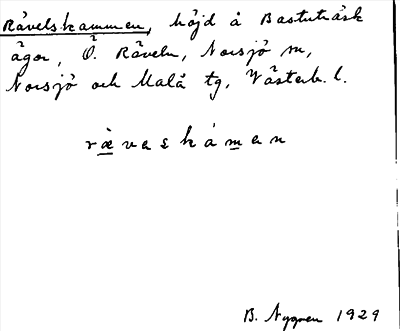 Rävelskammen, höjd å Bastuträsk
ägor, Ö. Räveln, Norsjö sn,
Norsjö och Malå tg, Västerb. l.
rævɐskámɐn
B. Nygren 1929